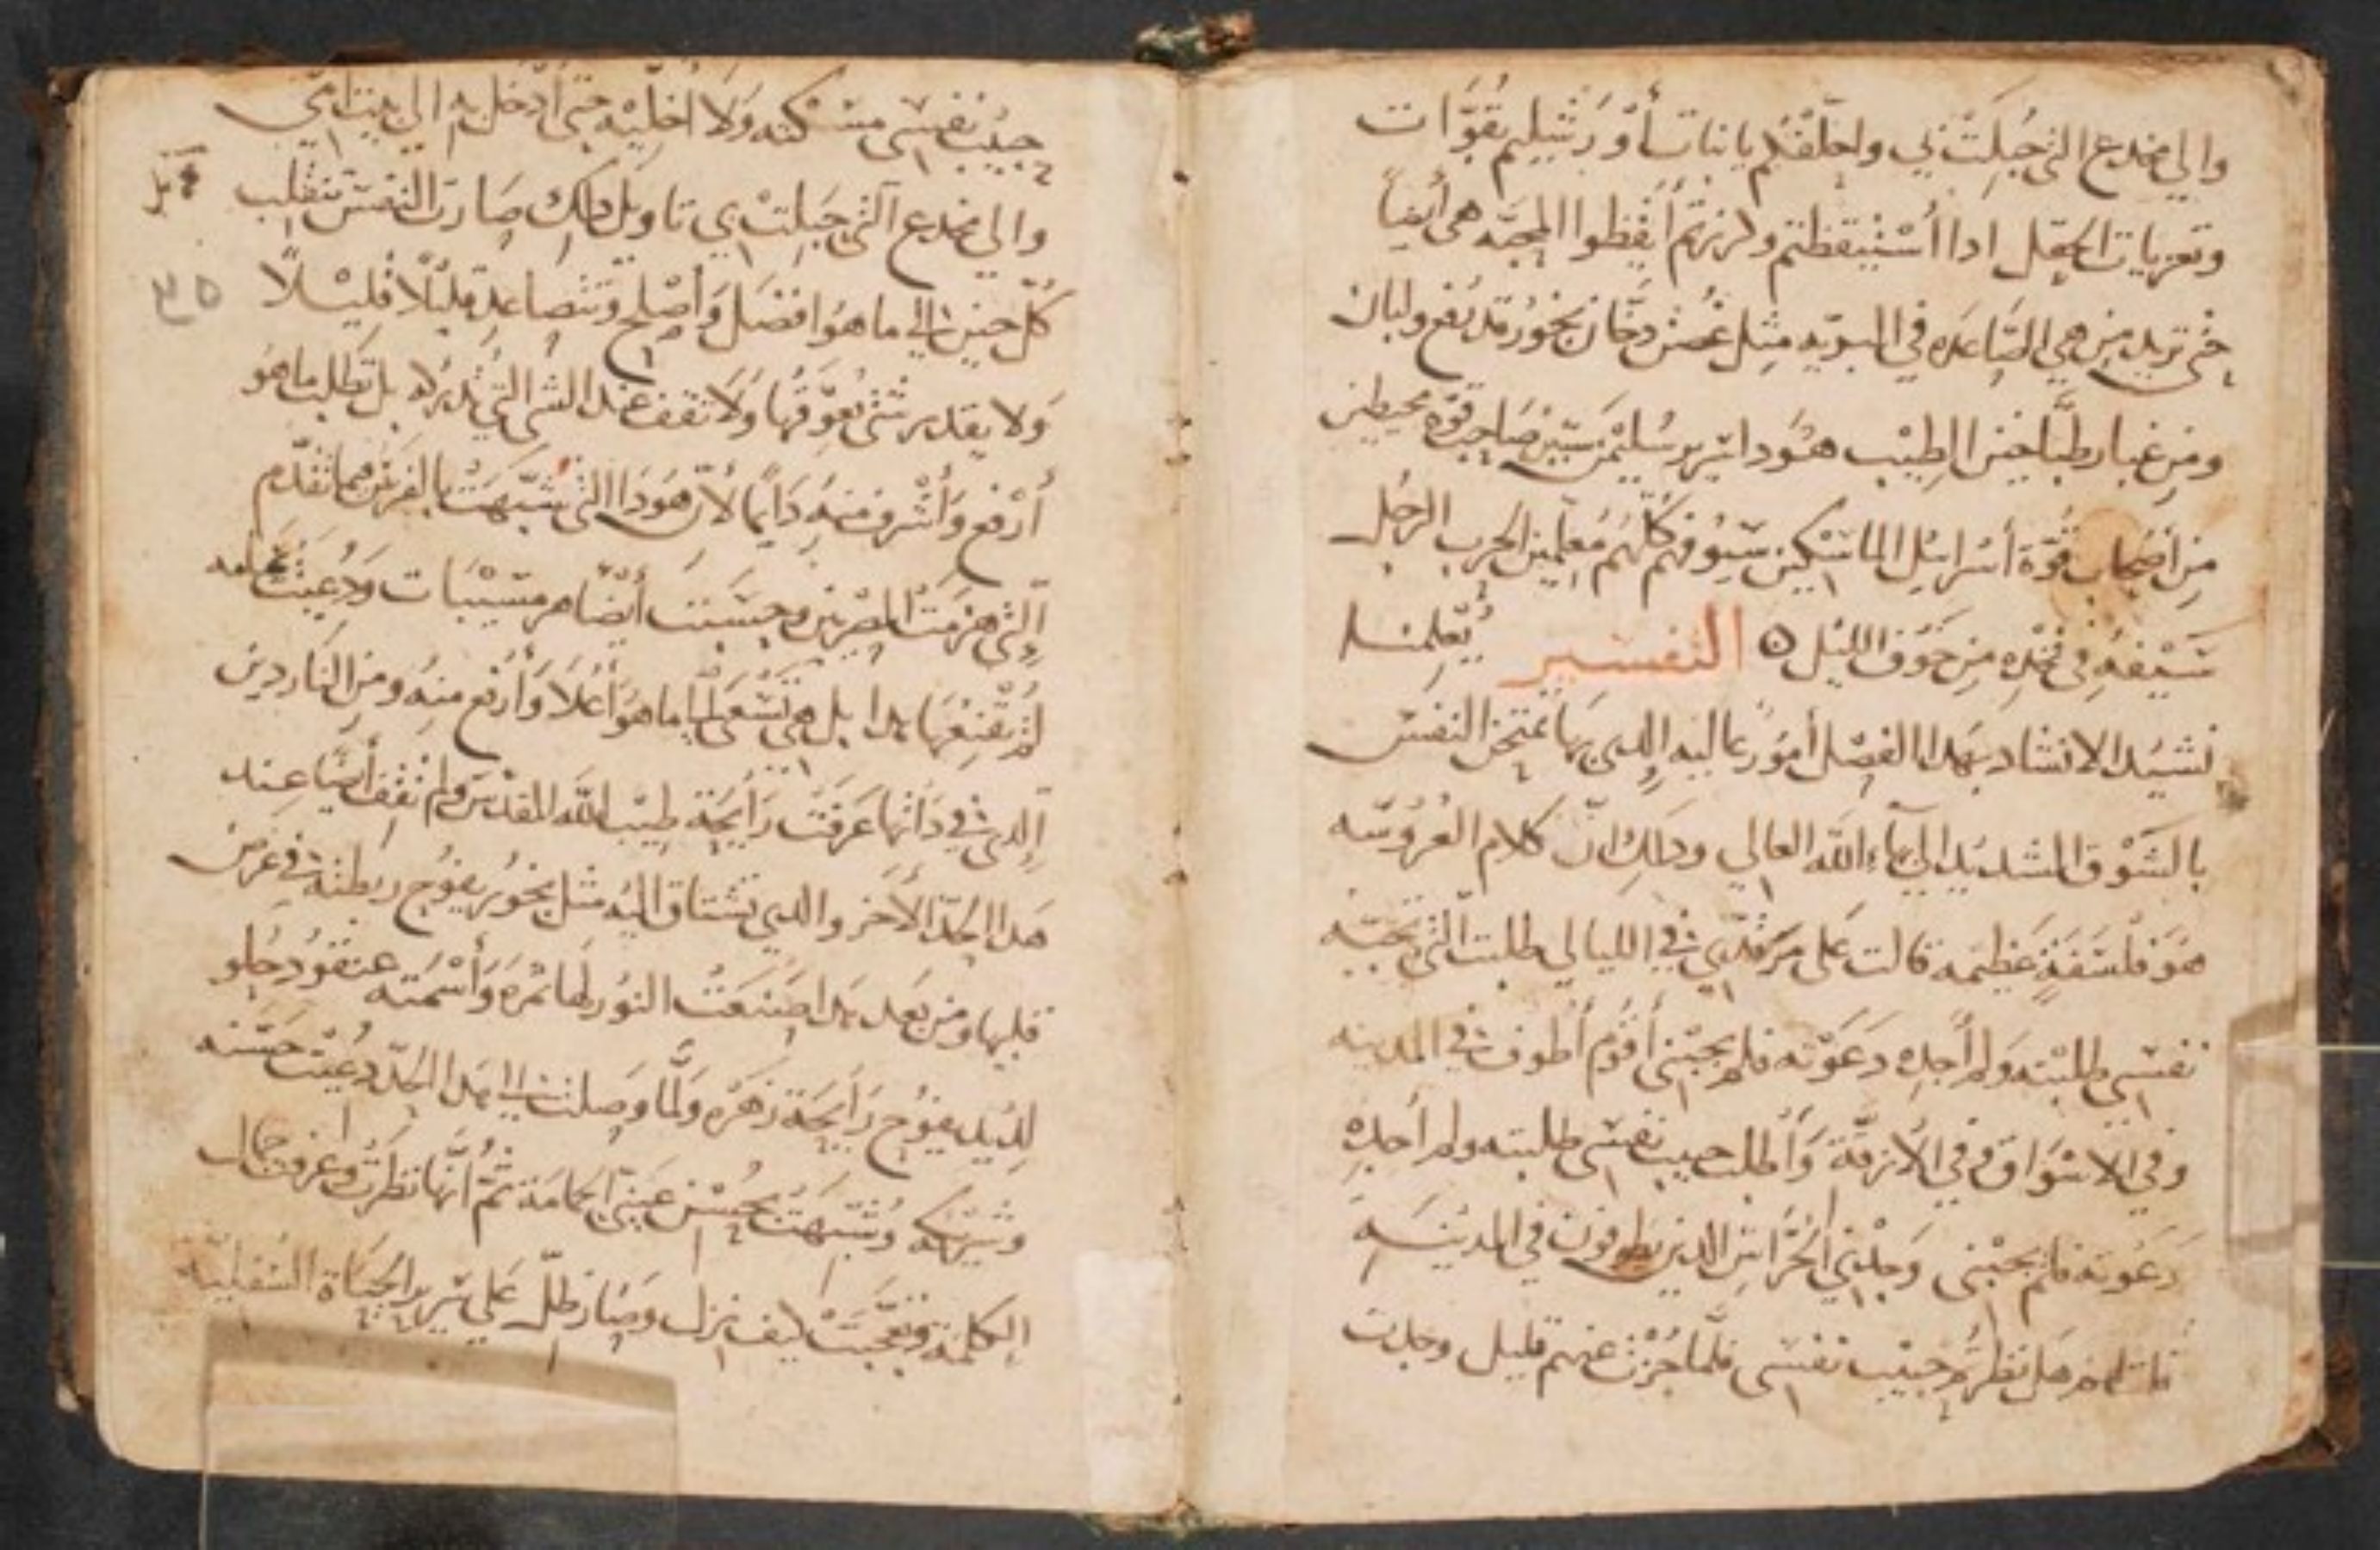 والى مخدع التى حبلت بي واحلفكم يا بنات أورشليم بقوات
وتعزيات الحقل اذا أستيقظتم ولزتم أيقظوا المحبه هى أيضاً
حتى تريد من هي الصاعده في البريه مثل غصن دخان بخور قد يفع ولبان
ومن غبار طباخين الطيب هودا سرير سليمن ستين صاحب قوه محيطين
من أصحاب قوة أسرائيل الماسكين سيوف كلهم معلمين الحرب الرجل
سيفه في فخده من خوف الليل ۞ التفسير يعلمنا
نشيد الانشاد بهدا الفصل أمور عاليه الدى بها تمتحن النفس
بالشوق الشديد الى بهاء الله العالى ودلك ان كلام العروسه
هو فلسفة عظيمه قالت على مرقدي في الليالى طلبت التى تحبه
نفسي طلبته ولم أجده دعوته فلم يجبنى أقوم أطوف في المدينه
وفي الاسواق وفي الأزقة وأطلب حبيب نفسى طلبته ولم أجده
دعوته فلم يجبنى وجدني الحراس الدين يطوفون في المدينه
هل نظرتم حبيب نفسى فلما جزت عنهم قليل وجدت
حبيب نفسى مسكته ولا أخليه حتى أدخل به الى بيت امي
والى مخدع التى حبلت بي تاويل دلك صارت النفس تنقلب
كل حين الى ما هو افضل وأصلح وتتصاعد قليلًا قليلًا
ولا يقدر شى يعوقها ولا تقف عند الشى التى تدركه بل تطلب ما هو
أرفع وأشرف منه دايماً لأن هودا التى شبهت بالفرس مما تقدم
التى هزمت المصريين وحسبت أيضا مسيبات ورعيت
لم تقنعها هدا بل هي تسعى الى ما هو أعلا وأرفع منه ومن الناردين
الدى في داتها عرفت رايحة طيب الله المقدس ولم تقف أيضا عند
هدا الحد الأخر والدى تشتاق اليه مثل بخور يفوح ربطته في عرض
قلبها ومن بعد هدا صنعت النور لها ثمره وأسمته عنقود حلو
لديد يفوح رايحة زهره ولما وصلت الى هدا الحد دعيت حسنه
وشريكه وشبهت بحسن عينى الحمامة ثم انها نظرت وعرفت جمال
الكلمة وتعجبت كيف نزل وصار ظل على سرير الحياة السفليه